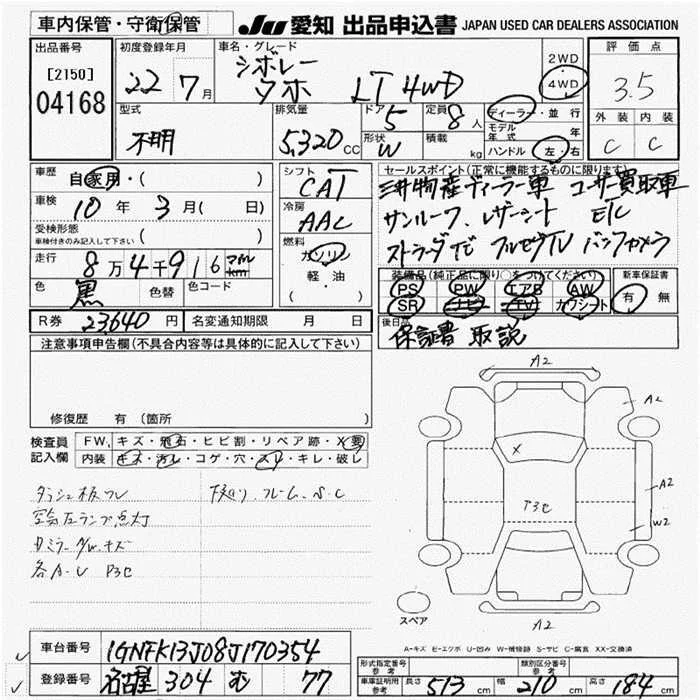 車内保管・守衛保管
JU 愛知 出品申込書 JAPAN USED CAR DEALERS ASSOCIATION
出品番号
[2150]
04168
初度登録年月
22年7月
車名・グレード
シボレー
タホ LT 4WD
2WD
・
4WD
評価点
3.5
外装 内装
C C
型式
不明
排気量
5,320 CC
ドア
5
形状
W
定員
8人
積載
kg
ディーラー・並行
モデル年式 年
ハンドル 左・右
車歴
自家用・( )
車検
10年3月( 日)
受検形態
車検付きのみ記入して下さい ( )
走行
8万4千916 マイル km
色
黒
色替
色コード
R券 23,640円
名変通知期限 月 日
シフト
CAT
冷房
AAC
燃料
ガソリン
軽・油
( )
セールスポイント(正常に機能するものに限ります)
三井物産ディーラー車 ユーザー買取車
サンルーフ、レザーシート ETC
ストラーダナビ フルセグTV バックカメラ
装備品(純正品に限り○をつけてください)
PS PW エアB AW
SR ナビ TV カワシート
新車保証書
有 無
後日品
保証書 取説
注意事項申告欄(不具合内容等は具体的に記入して下さい)
修復歴 有(箇所 )
検査員記入欄
FW. キズ・飛石・ヒビ割・リペア跡・X要
内装 キズ・汚レ・コゲ・穴・スレ・キレ・破レ
ダッシュ板フレ
下廻り、フレーム、S.C
空気圧ランプ点灯
各A・U P3C
A2
A2
X
A2
P3C
W2
A2
スペア
A-キズ E-エクボ U-凹ミ W-補修跡 S-サビ C-腐食 XX-交換済
車台番号 1GNFK13J08J170354
登録番号 名古屋 304 む 77
形式指定番号 参考
類別区分番号 参考
車庫証明用 参考
長さ 513cm 幅 210cm 高さ 184cm